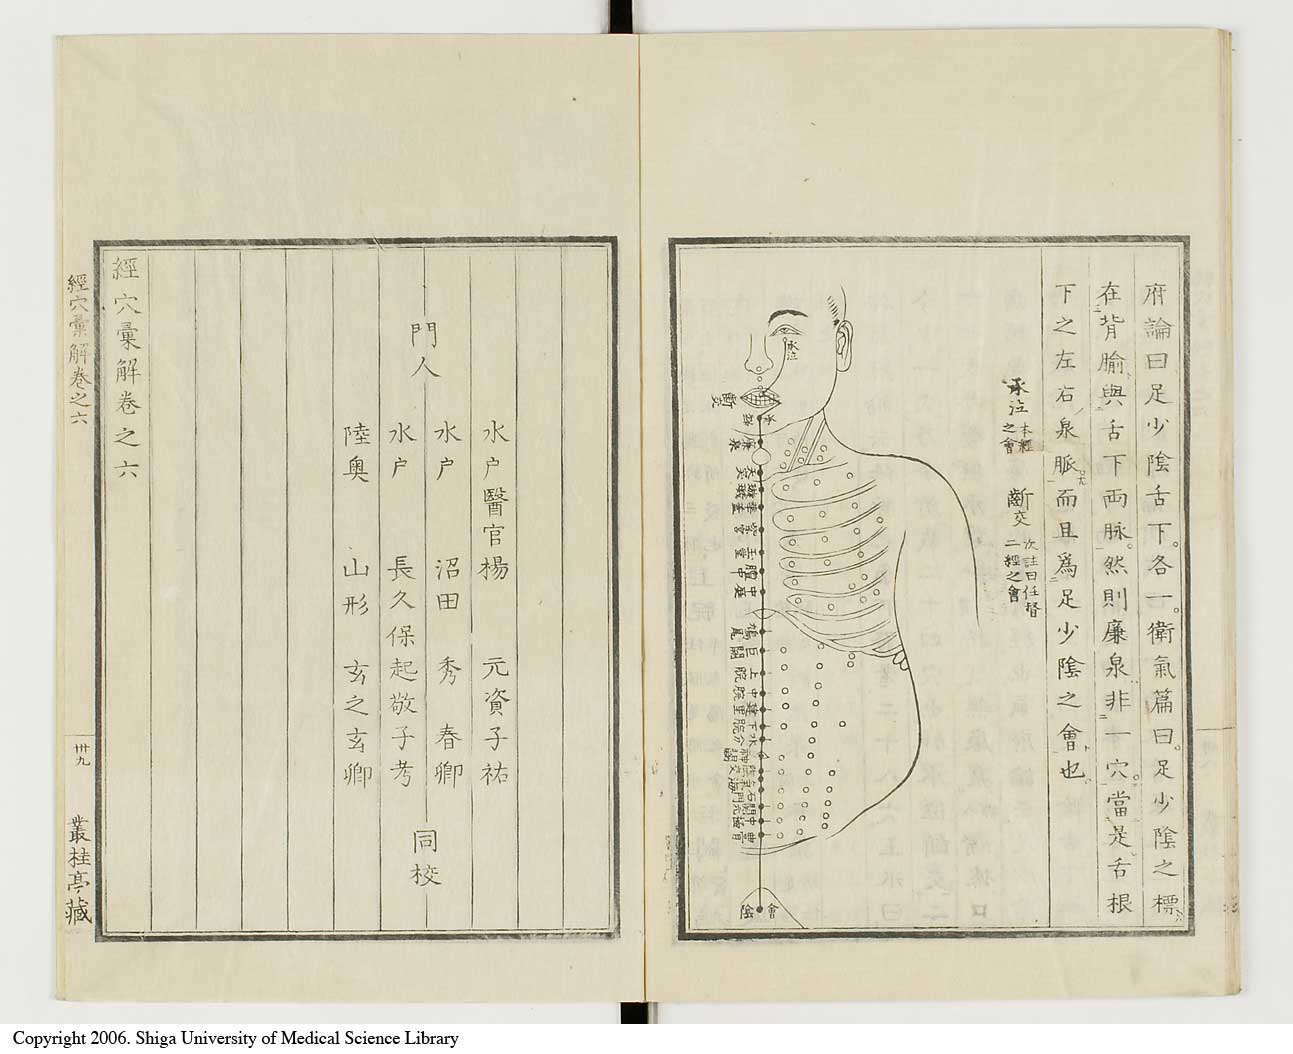 府論曰足少陰舌下各一衛氣篇曰足少陰之標
在背腧與舌下兩脉然則廉泉非一穴當是舌根
下之左右泉脈而且爲足少陰之會也
承泣 本經之會 齗交 次註曰任督二經之會
承泣
齗交
承
廉泉
天突
璇璣
華蓋
紫宮
玉堂
膻中
中庭
鳩尾
巨闕
上脘
中脘
建里
下脘
水分
神闕
陰交
氣海
石門
關元
中極
曲骨
會陰
門人
水户醫官楊 元資子祐
水户 沼田 秀 春卿
水户 長久保起敬子考
陸奥 山形 玄之玄卿
同校
經穴彙解卷之六
經穴彙解卷之六
卅九
叢桂亭藏
Copyright 2006. Shiga University of Medical Science Library